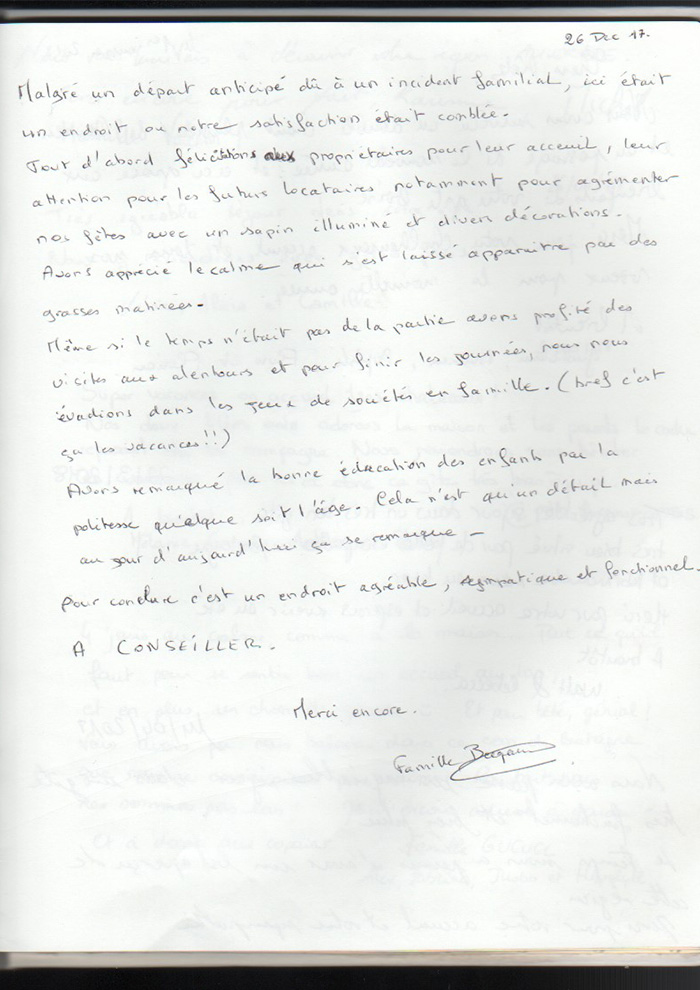 26 Dec 17.
Malgré un départ anticipé dû à un incident familial, ici était
un endroit ou notre satisfaction était comblée.
Tout d'abord félicitations aux propriétaires pour leur acceuil, leur
attention pour les futurs locataires notamment pour agrémenter
nos fêtes avec un sapin illuminé et divers décorations.
Avons apprécié le calme qui s'est laissé apparaitre par des
grasses matinées.
Même si le temps n'était pas de la partie avons profité des
visites aux alentours et pour finir les journées, nous nous
évadions dans les jeux de sociétés en famille. (bref c'est
ça les vacances!!)
Avons remarqué la bonne éducation des enfants par la
politesse quelque soit l'âge. Cela n'est qu'un détail mais
au jour d'aujourd'hui ça se remarque -
Pour conclure c'est un endroit agréable, sympatique et fonctionnel.
A CONSEILLER.
Merci encore.
Famille